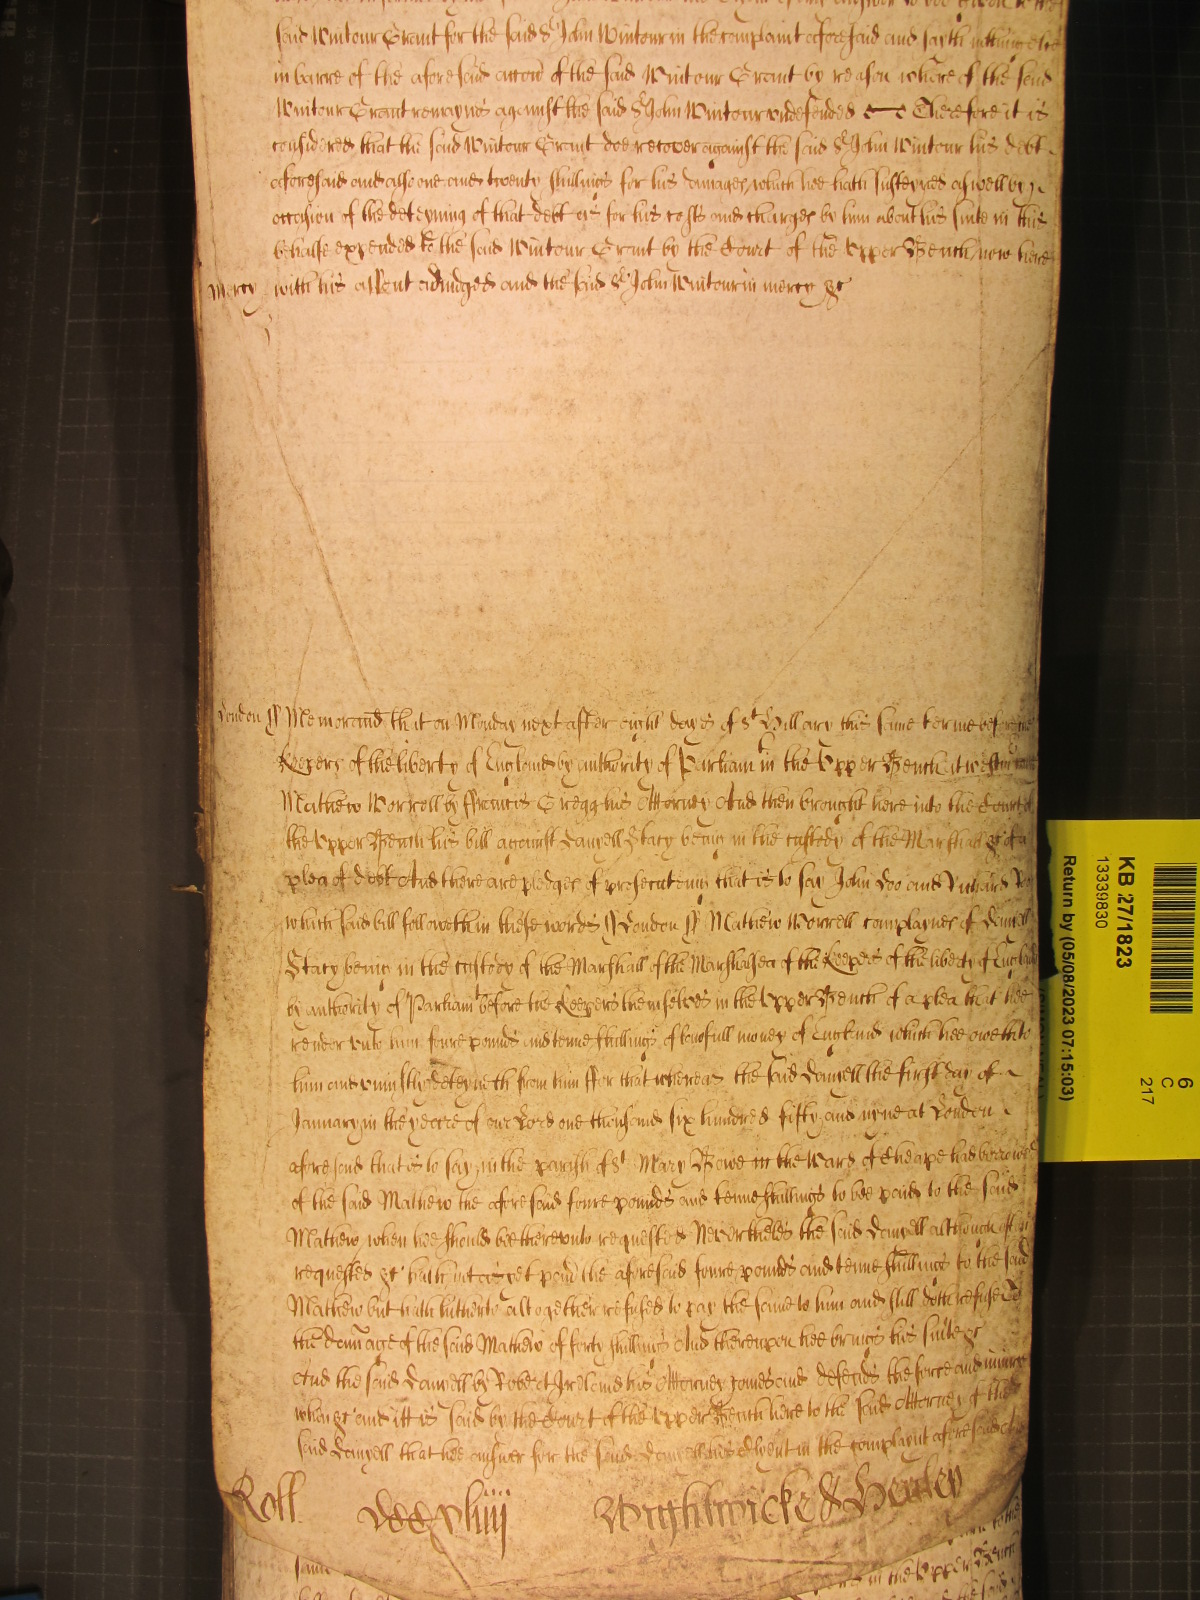 said Wintour Grant for the said Sr John Wintour in the complaint aforesaid and sayth nothing else
in barre of the aforesaid accon of the said Wintour Grant by reason where of the said
Wintour Grant remaynes against the said Sr John Wintour undefended Therefore it is
considered that the said Wintour Grant doe recover against the said Sr John Wintour his debt
aforesaid and also one and twenty shillings for his damages which hee hath susteyned aswell by
occasion of the deteyning of that debt as for his costs and charges by him about his suite in this
behalfe expended to the said Wintour Grant by the Court of the Upper Bench now here
Mercy with his assent adiudged and the said Sr John Wintour in mercy &c
London ss Memorand that on Monday next after eight dayes of St Hillary this same terme before the
Keepers of the liberty of England by authority of Parliam in the Upper Bench at Westm
Mathew Worrell by Francis Gregg his Attorney And then brought here into the Court of
the Upper Bench his bill against Danyell Stacy being in the custody of the Marshall &c of a
plea of debt And there are pledges of prosecuteing that is to say John Doo and Richard Roo
which said bill followeth in these words ss London ss Mathew Worrell complaynes of Danyell
Stacy being in the custody of the Marshall of the Marshalsea of the Keepers of the liberty of England
by authority of Parliam before the Keepers themselves in the Upper Bench of a plea that hee
render unto him foure pounds and tenne shillings of lawfull money of England which hee oweth to
him and uniustly deteyneth from him For that whereas the said Danyell the first day of
January in the yeere of our Lord one thousand six hundred fifty and nyne at London
aforesaid that is to say in the parish of St Mary Bowe in the Ward of Cheape had borrowed
of the said Mathew the aforesaid foure pounds and tenne shillings to bee paid to the said
Mathew when hee should bee thereunto requested Nevertheles the said Danyell although often
requested &c hath not as yet paid the aforesaid foure pounds and tenne shillings to the said
Mathew but hath hitherto altogether refused to pay the same to him and still doth refuse To
the damage of the said Mathew of forty shillings And thereupon hee brings his suite &c
And the said Danyell by Robert Ireland his Attorney comes and defends the force and iniury
when &c and itt is said by the Court of the Upper Bench here to the said Attorney of the
said Danyell that hee answer for the said Danyell his Clyent in the complaynt aforesaid
Roll DCCCxliiij Wightwicke & Henley
in the Upper Bench
KB 27/1823
13339830
Return by (05/08/2023 07:15:03)
6
C
217